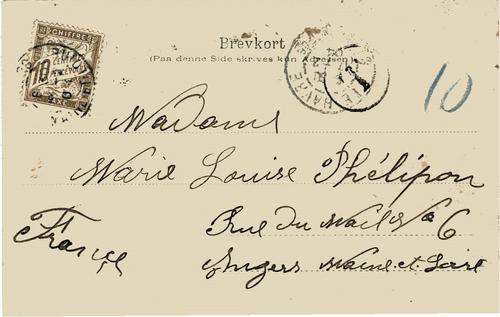 Brevkort
(Paa denne Side skrives kun Adressen)
CHIFFRE
10
TAXE
LE HAVRE
T
10
Madame
Marie Louise Phélipon
Rue du Mail No 6
France
Angers Maine et Loire